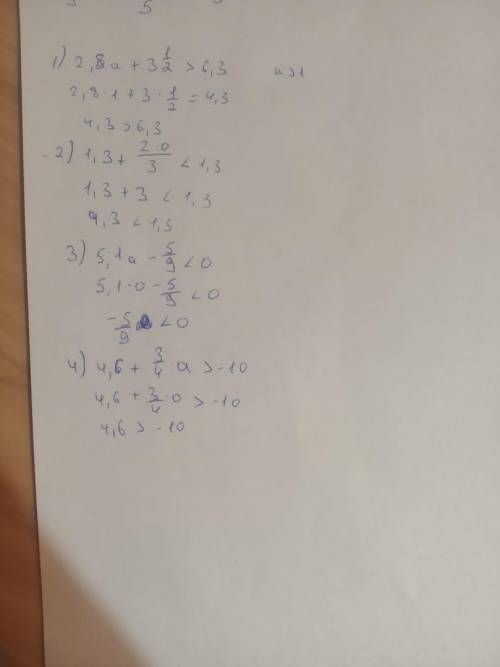 5
1) 2,8a + 3 1/2 > 6,3 a>1
2,8·1 + 3·1/2 = 4,3
4,3 > 6,3
2) 1,3 + 2·0/3 < 1,3
1,3 + 3 < 1,3
4,3 < 1,3
3) 5,1a - 5/9 < 0
5,1·0 - 5/9 < 0
-5/9 < 0
4) 4,6 + 3/4 a > -10
4,6 + 3/4·0 > -10
4,6 > -10